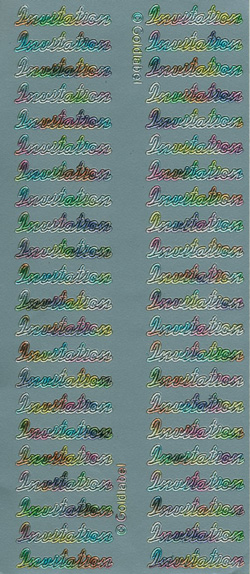 Invitation Invitation
Invitation Invitation
Invitation Invitation
Invitation Invitation
Invitation Invitation
Invitation Invitation
Invitation Invitation
Invitation Invitation
Invitation Invitation
Invitation Invitation
Invitation Invitation
Invitation Invitation
Invitation Invitation
Invitation Invitation
Invitation Invitation
Invitation Invitation
Invitation Invitation
Invitation Invitation
Invitation Invitation
Invitation Invitation
Invitation Invitation
Invitation Invitation
© Goldlabel
© Goldlabel